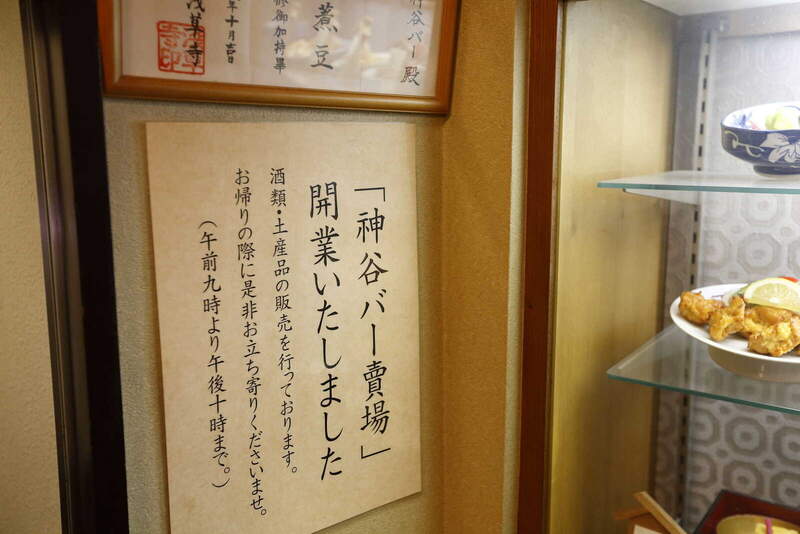 神谷バー殿
煮豆
修御加持畢
年十月吉日
浅草寺
「神谷バー賣場」
開業いたしました
酒類・土産品の販売を行っております。
お帰りの際に是非お立ち寄りくださいませ。
（午前九時より午後十時まで。）